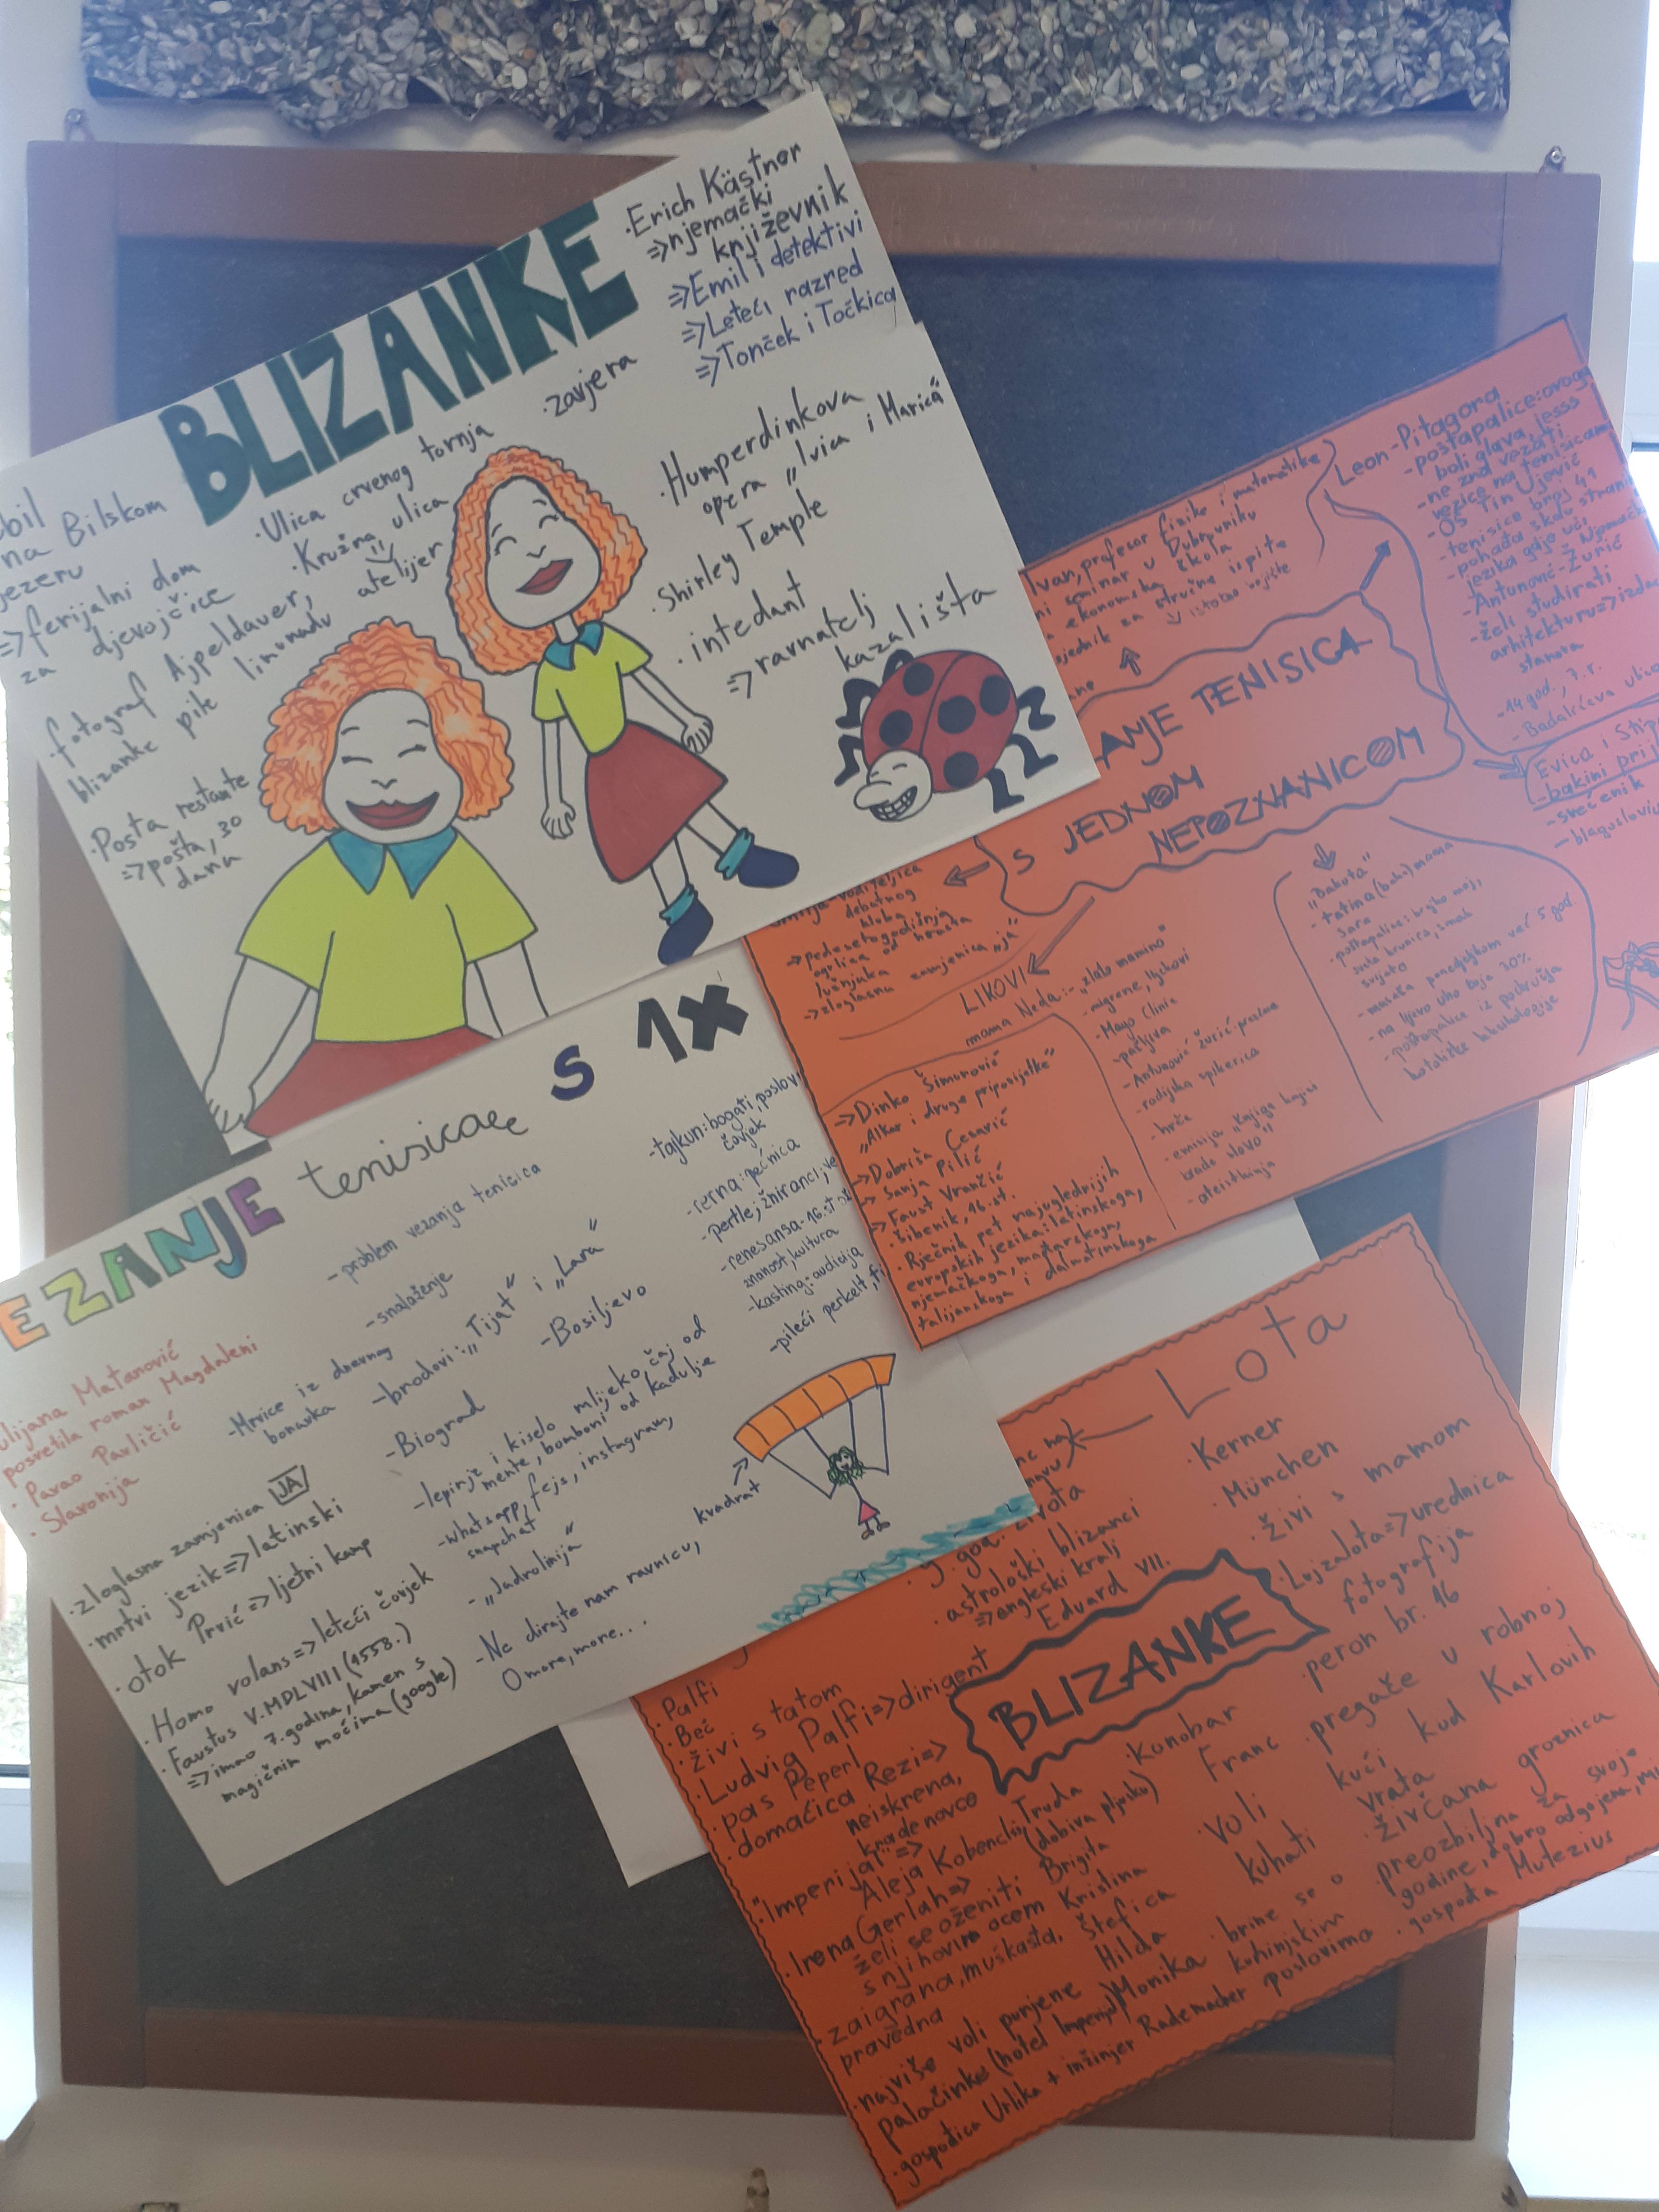 BLIZANKE
·Erich Kästner
=>njemački
književnik
=>Emil i detektivi
=>Leteći razred
=>Tonček i Točkica
na Bilskom
jezeru
=>ferijalni dom
za djevojčice
·fotograf Ajpeldauer,
blizanke pile limunadu
·Posta restante
=>pošta, 30
dana
·Ulica crvenog tornja
·Kružna ulica
atelijer
·zavjera
·Humperdinkova
opera „Ivica i Marica“
·Shirley Temple
·intedant
=>ravnatelj
kazališta
Ivan, profesor fizike i matematike
seminar u Dubrovniku
ekonomska škola
za stručne ispite
Leon-Pitagora
-poštapalice: ovoga,
boli glava, jesss
-ne zna vezati
vezice na tenisicama
-OŠ Tin Ujević
-tenisice broj 41
-pohađa školu stranih
jezika gdje uči njemački
-Antunović-Žurić
-želi studirati
arhitekturu=>izdaja
stanova
-14 god., 7. r.
-Badalićeva ulica
Evica i Stip
-bakini prij
-svećenik
-blagoslovio
ANJE TENISICA
S JEDNOM
NEPOZNANICOM
voditeljica
debatnog
kluba
->pedesetogodišnja
ogrlica od hrasta
lužnjaka
->zloglasna zamjenica „ja“
LIKOVI
mama Neda:-„zlato mamino“
-migrene, živci
-Mayo Clinic
-pažljiva
-Antunović Žurić-prezime
-radijska spikerica
-hrče
-emisija „Knjige knjige
brade slovo“
-ateistkinja
„Bakota“
-tatina (baka) mama
-Sara
-poštapalice: brajko moj,
sveta krunica, samoh
svijeta
-masaža ponedjeljkom već 5 god
-na lijevo uho čuje 30%
-poštapalice iz područja
katoličke leksikologije
->Dinko Šimunović
„Alkar i druge pripovijetke“
->Dobriša Cesarić
->Sanja Pilić
->Faust Vrančić
·Šibenik, 16. st.
·Rječnik pet najuglednijih
europskih jezika: latinskoga,
njemačkoga, mađarskoga,
talijanskoga i dalmatinskoga
EZANJE tenisica S 1X
ulijana Matanović
posvetila roman Magdaleni
·Pavao Pavličić
·Slavonija
-problem vezanja tenisica
-snalaženje
-Mrvice iz dnevnog
boravka
-brodovi: „Tijat“ i „Lara“
-Biograd
-Bosiljevo
-lepinje i kiselo mlijeko, čaj od
mente, bomboni od kadulje
-whatsapp, fejs, instagram,
snapchat
-„Jadrolinija“
-Ne dirajte nam ravnicu,
O more, more...
kvadrat
-tajkun: bogati, poslov
čovjek
-rerna: pećnica
-pertle, žniranci, ve
-renesansa-16. st.
znanost, kultura
-kasting: audicija
-pileći perkelt, fi
·zloglasna zamjenica JA
·mrtvi jezik=>latinski
·otok Prvić=>ljetni kamp
·Homo volans=>leteći čovjek
·Faustus V. MDLVIII (1558.)
=>imao 7. godina, kamen s
magičnim moćima (google)
Lota
·Kerner
·München
·živi s mamom
·Lujzalota=>urednica
fotografija
·peron br. 16
·pregače u robnoj
kući kud Karlovih
vrata
·živčana groznica
·preozbiljna za svoje
godine, dobro odgojena, mi
·gospođa Mutezius
9. god. života
·astrološki blizanci
=>engleski kralj
Eduard VII.
BLIZANKE
·Palfi
·Beč
·živi s tatom
·Ludvig Palfi=>dirigent
·pas Peperl
·domaćica Rezi=>
neiskrena,
krade novce
·„Imperijal“=>
·Aleja Kobencl
·Irena Gerlah=>
želi se oženiti
s njihovim ocem
·zaigrana, muškasta,
pravedna
·najviše voli punjene
palačinke (hotel Imperijal)
·gospođica Urlika + inžinjer Rademacher
·Truda
(dobiva pljusku)
Brigita
Kristina
Štefica
Hilda
Monika
·Konobar Franc
·voli kuhati
·brine se o
kuhinjskim
poslovima